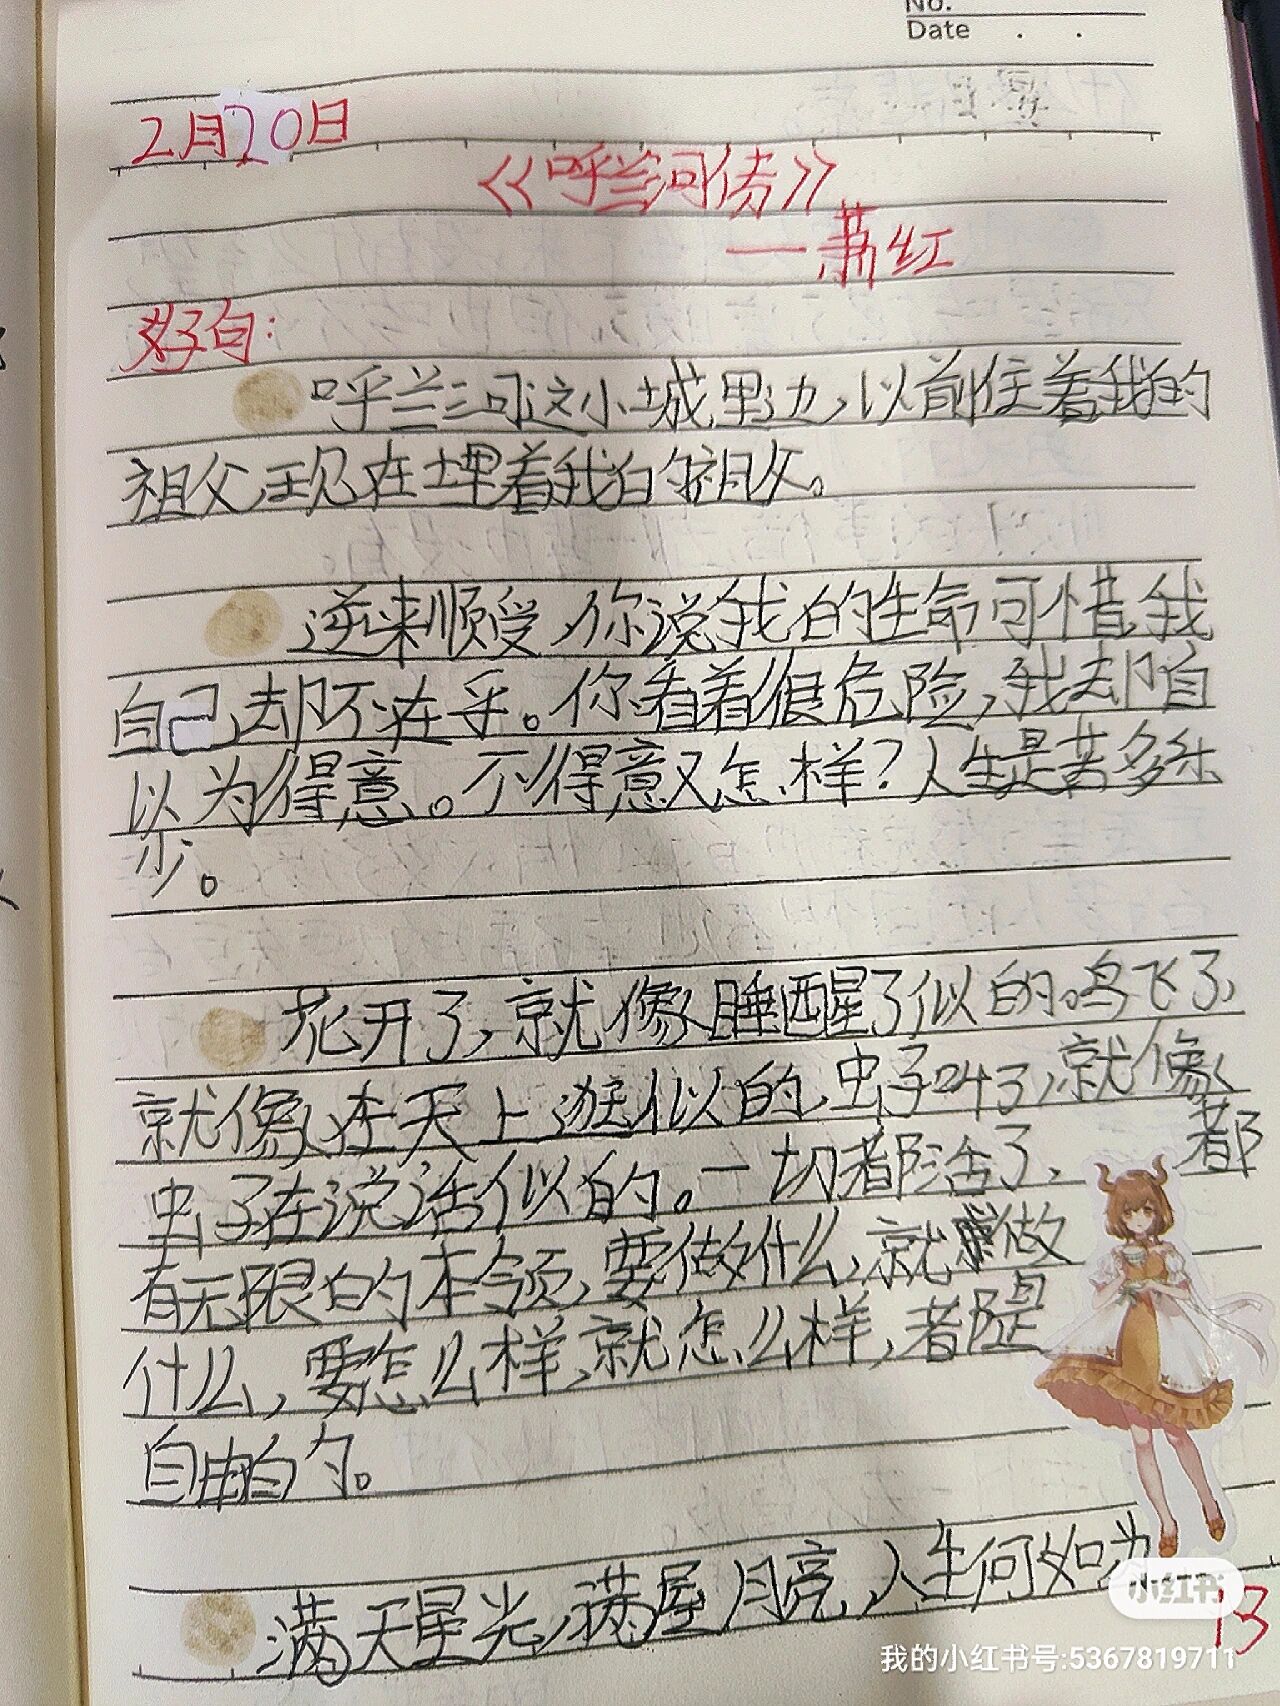 No.
Date . .
2月20日
《呼兰河传》
—萧红
好句:
呼兰河这小城里边,以前住着我的
祖父,现在埋着我的祖父。
逆来顺受,你说我的生命可惜,我
自己,却不在乎。你看着很危险,我却自
以为得意。不得意又怎样?人生是苦多乐
少。
花开了,就像睡醒了似的。鸟飞了,
就像在天上逛似的,虫子叫了,就像
虫子在说话似的。一切都活了, 都
有无限的本领,要做什么,就做
什么,要怎么样,就怎么样,都是
自由的。
满天星光,满屋月亮,人生何如,为
小红书
13
我的小红书号:5367819711